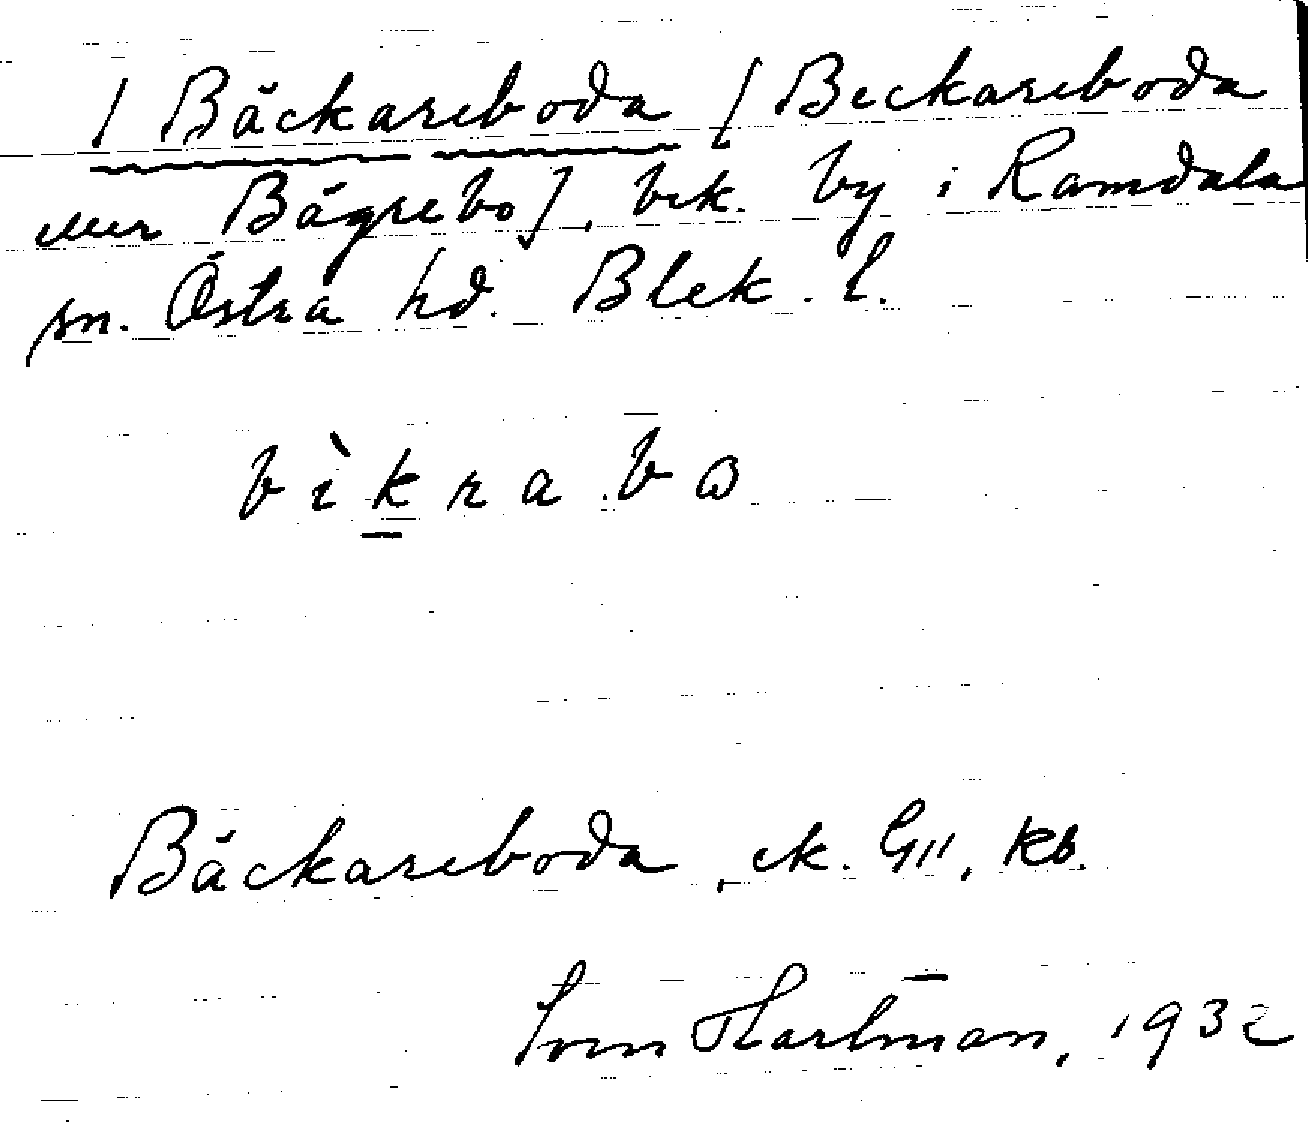 / Bäckareboda [ Beckareboda
eller Bägrebo], bek. by i Ramdala
sn. Östra hd. Blek. l.
bìkrabo
Bäckareboda, ek. G11, kb.
Sven Hartman, 1932